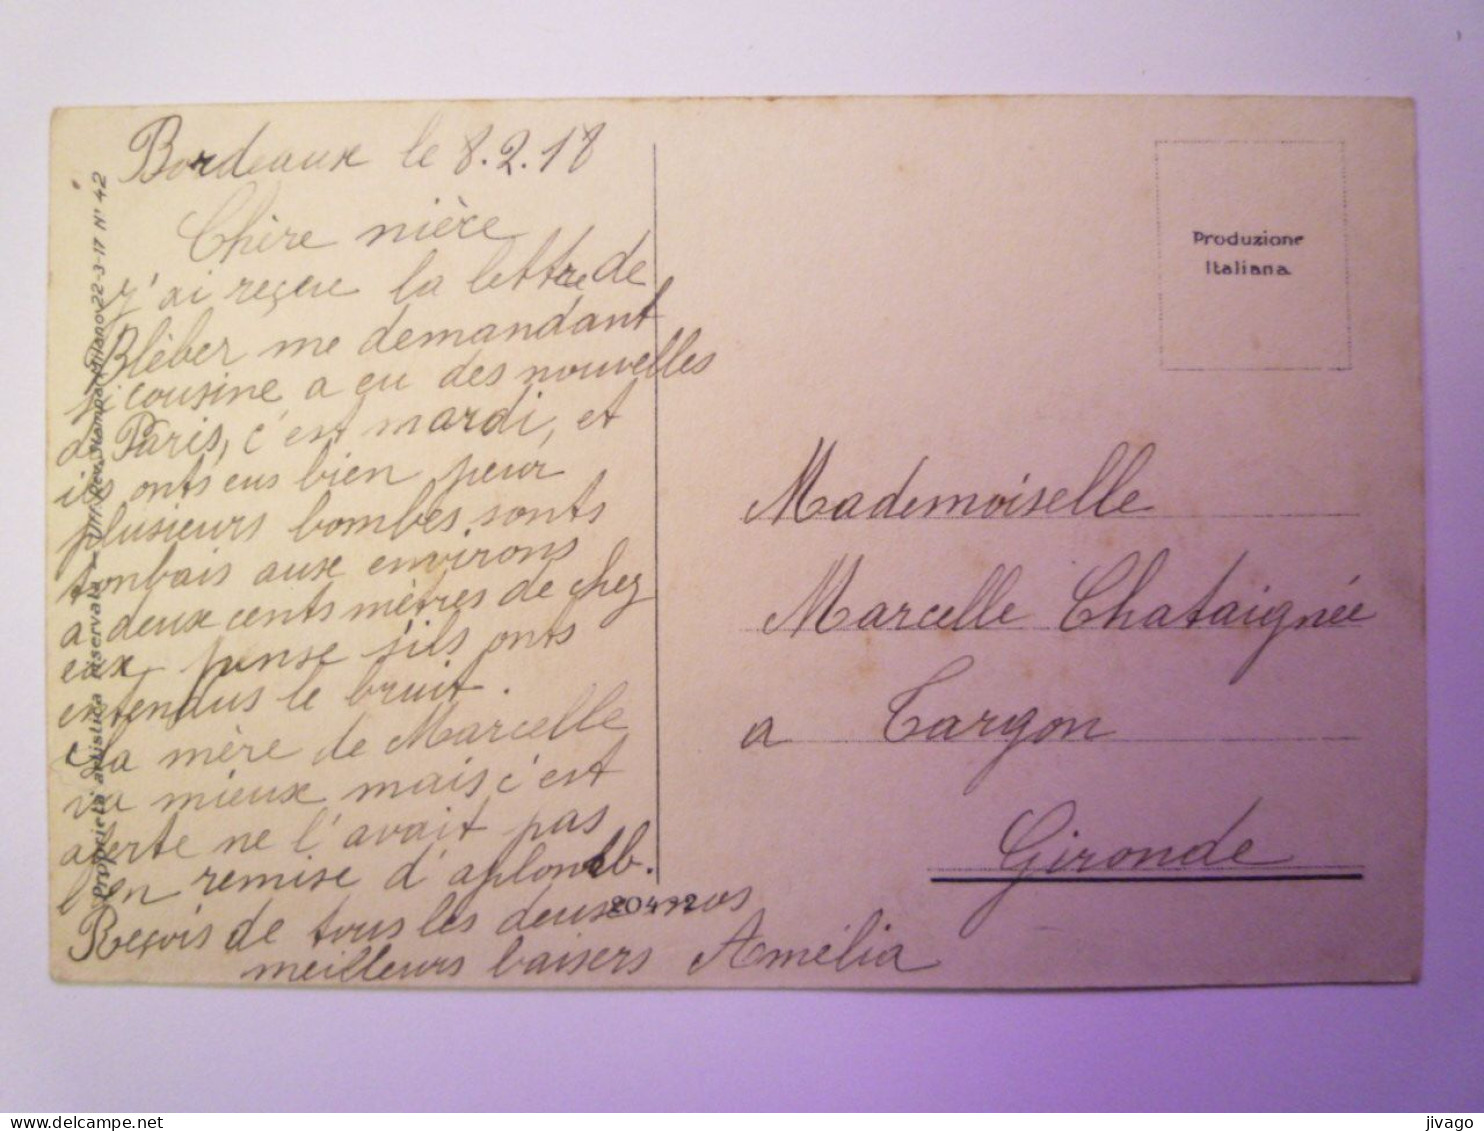 Bordeaux le 8.2.18
Chère nièce
j'ai reçue la lettre de
Bléber me demandant
si cousine a eu des nouvelles
de Paris, c'est mardi, et
ils onts eus bien peur
plusieurs bombes sonts
tonbais aux environs
a deux cents mètres de chez
eux panse s'ils onts
entendus le bruit.
la mère de Marcelle
va mieux mais c'est
ne l'avait pas
remise d'aplomb.
Reçois de tous les deux nos
meilleurs baisers Amélia
Proprietà artistica riservata - Uff. Rev. Stampa Milano 22-3-17 N° 42
Produzione
Italiana
Mademoiselle
Marcelle Chataignée
a Targon
Gironde
jivago